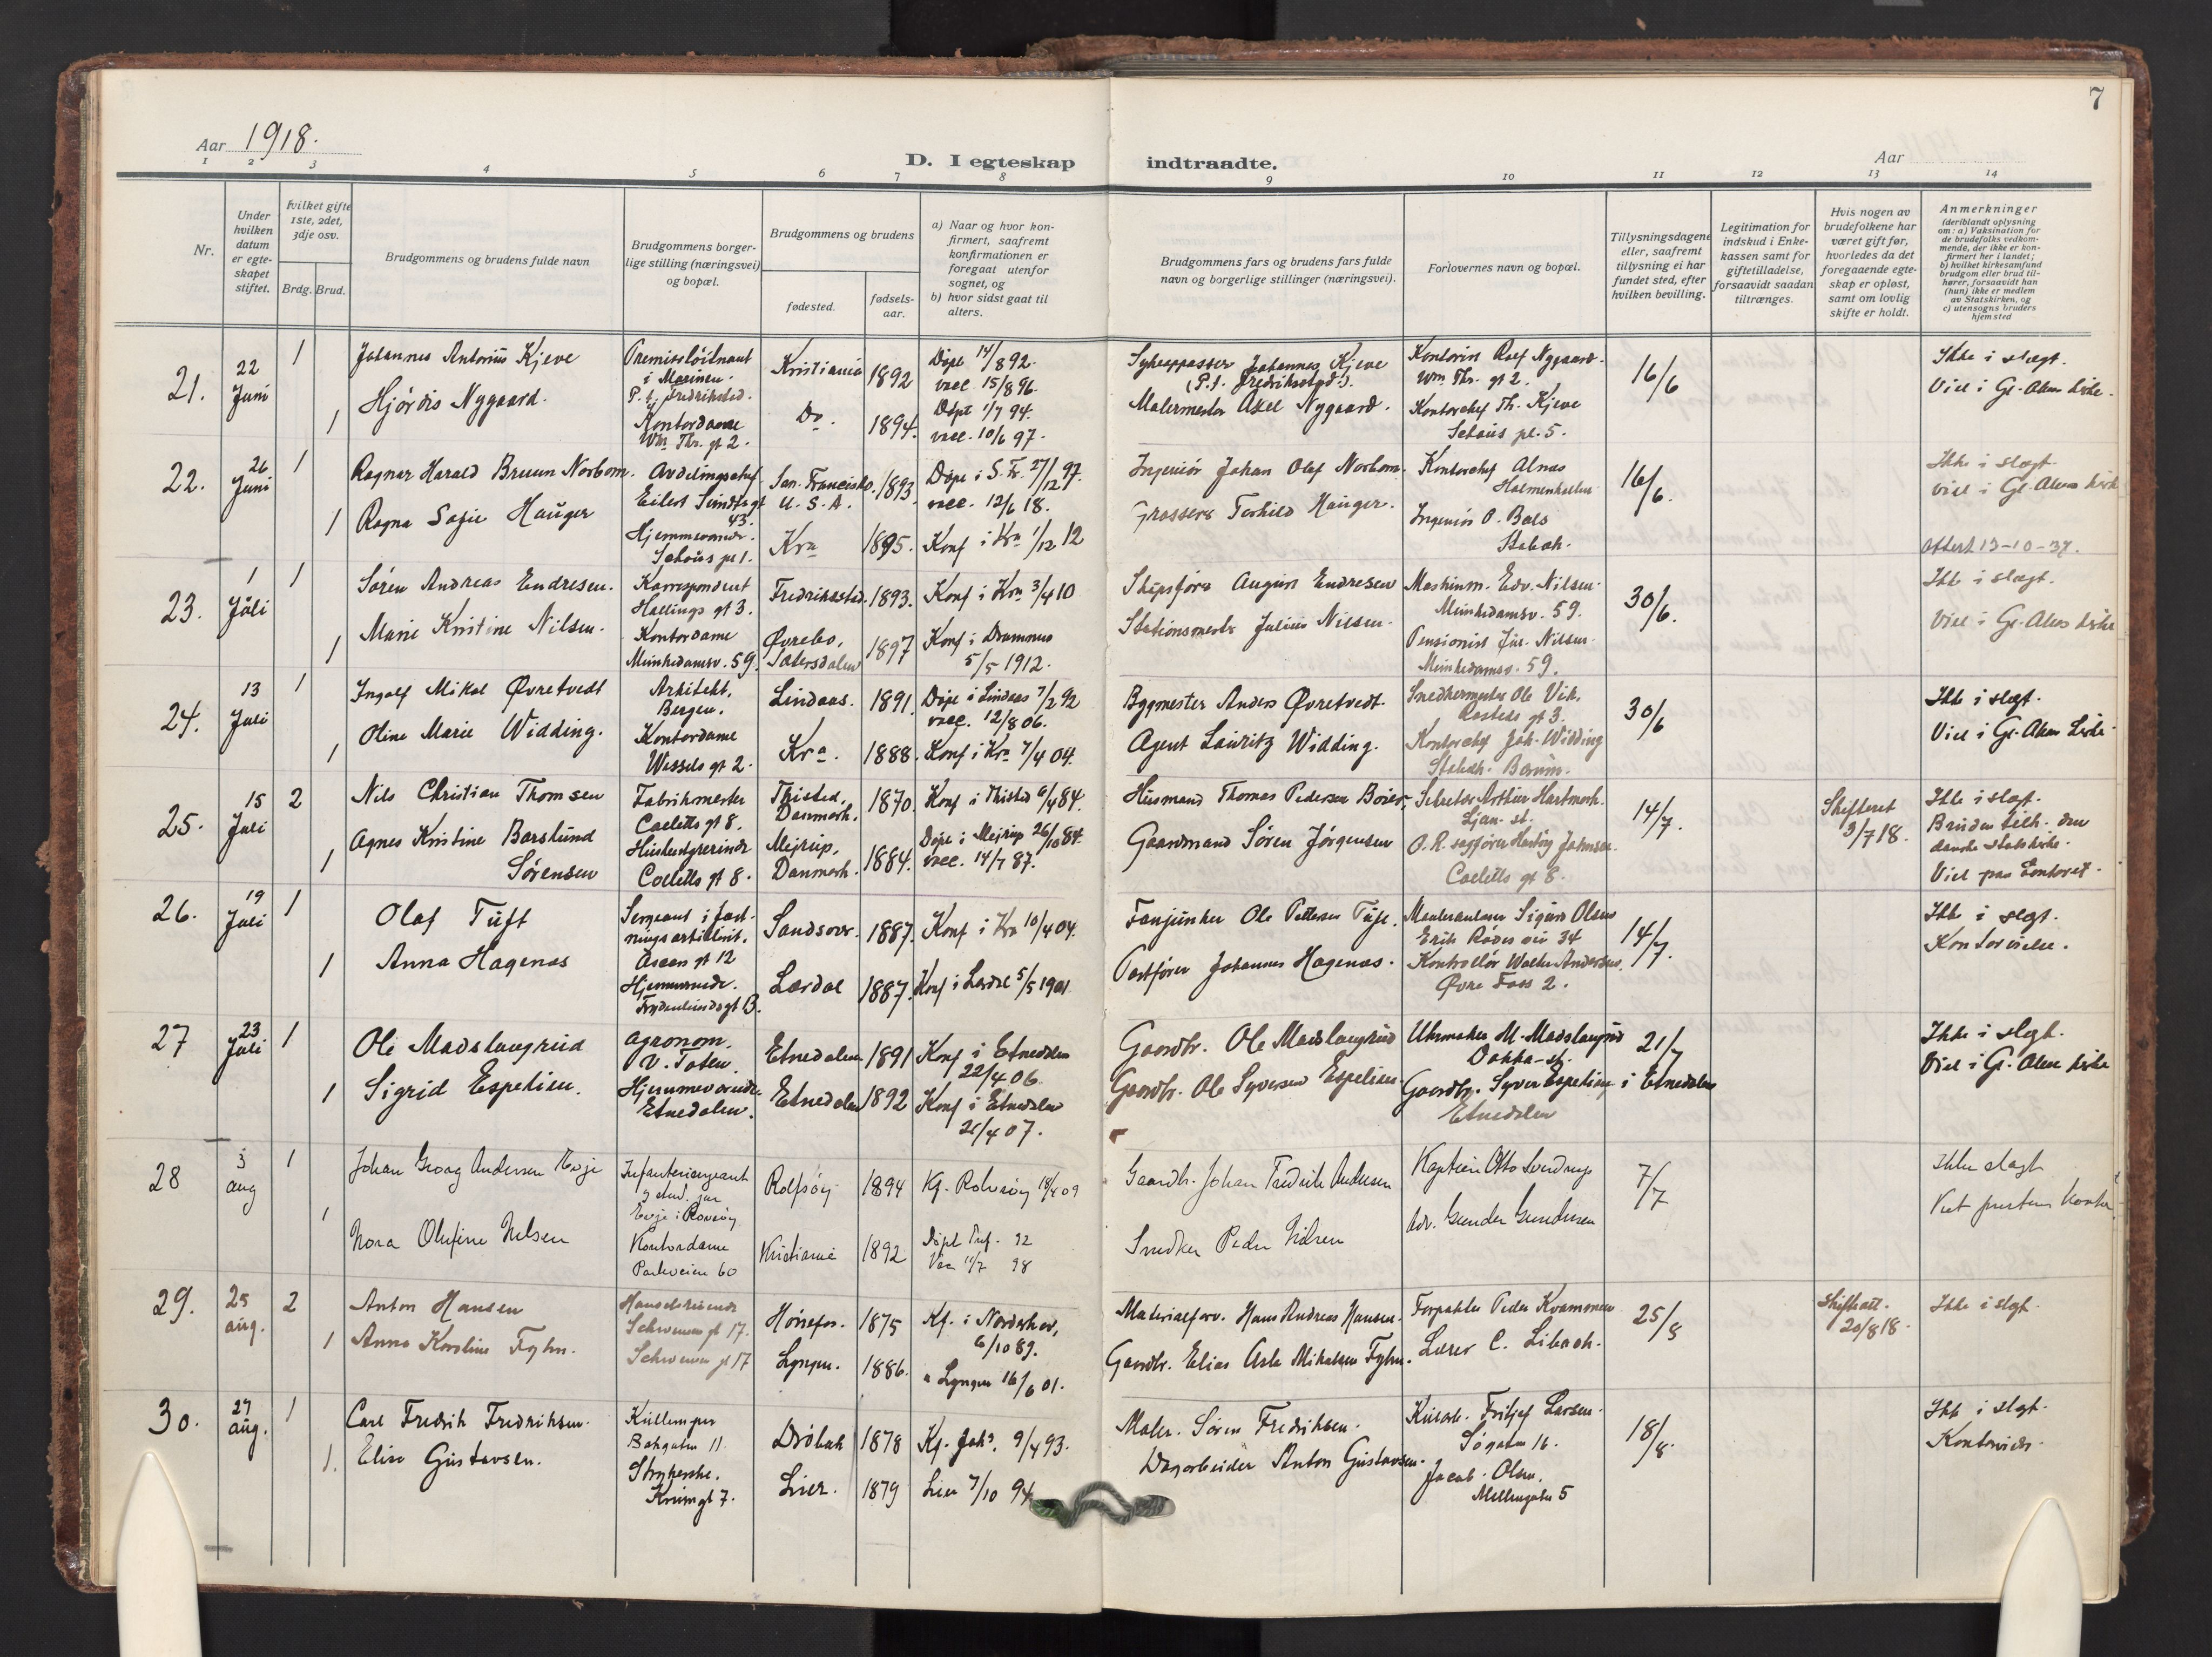 7
Aar 1918.
D. I egteskap indtraadte.
Aar
1 2 3 4 5 6 7 8 9 10 11 12 13 14
Nr.
Under hvilken datum er egteskapet stiftet.
hvilket gifte 1ste, 2det, 3dje osv.
Brdg. Brud.
Brudgommens og brudens fulde navn
Brudgommens borgerlige stilling (næringsvei) og bopæl.
Brudgommens og brudens
fødested.
fødselsaar.
a) Naar og hvor konfirmert, saafremt konfirmationen er foregaat utenfor sognet, og
b) hvor sidst gaat til alters.
Brudgommens fars og brudens fars fulde navn og borgerlige stillinger (næringsvei).
Forlovernes navn og bopæl.
Tillysningsdagene eller, saafremt tillysning ei har fundet sted, efter hvilken bevilling.
Legitimation for indskud i Enkekassen samt for giftetilladelse, forsaavidt saadan tiltrænges.
Hvis nogen av brudefolkene har været gift før, hvorledes da det foregaaende egteskap er opløst, samt om lovlig skifte er holdt.
Anmerkninger
(deriblandt oplysning om: a) Vaksination for de brudefolks vedkommende, der ikke er konfirmert her i landet; b) hvilket kirkesamfund brudgom eller brud tilhører, forsaavidt han (hun) ikke er medlem av Statskirken, og c) utensogns bruders hjemsted
21. 22 Juni 1 Johannes Antonius Kjeve Premierløitnant i Marinen. P.t. Fredrikstad. Kristiania 1892 Døpt 14/8 92. vacc. 15/8 96. Sykepasser Johannes Kjeve (P.t. Fredrikstad.). Kontorist Rolf Nygaard. Wm. Thr. gt 2. 16/6 Ikke i slegt.
1 Hjørdis Nygaard. Kontordame Wm. Thr. gt 2. Do. 1894. Døpt 1/7 94. vacc. 10/6 97. Malermester Axel Nygaard. Kontorchef Th. Kjeve Schous pl. 5. Viet i Gl. Aker kirke.
22. 26 Juni 1 Ragnar Harald Bruun Norbom. Avdelingschef Eilert Sundtsgt 43. San Francisko. U.S.A. 1893 Døpt i S. Fr. 27/12 97. vacc. 12/6 18. Ingeniør Johan Olaf Norbom. Kontorchef Alnæs Holmenkollen 16/6. Ikke i slegt. viet i Gl. Aker kirke
1 Ragna Sofie Hauger Hjemmeværende. Schous pl 1. Kra 1895. Konf i Kra 1/12 12 Grosserer Torkild Hauger. Ingeniør O. Stabæk. Attest 13-10-37.
23. 1 Juli 1 Søren Andreas Endresen. Korrespondent Hallings gt 3. Fredrikstad. 1893. Konf i Kra 3/4 10 Skipsfører August Endresen Maskinm. Edv. Nilsen. Munkedamsv. 59. 30/6. Ikke i slegt.
1 Marie Kristine Nilsen. Kontordame Munkedamsv. 59. Øvrebø, Sætersdalen 1897 Konf i Drammen 5/5 1912. Stationsmester Julius Nilsen. Pensionist Jul. Nilsen. Munkedamsv. 59. Viet i Gl. Aker kirke
24. 13 Juli 1 Ingolf Mikal Øvretvedt Arkitekt. Bergen. Lindaas. 1891. Døpt i Lindaas 7/2 92 vacc. 12/8 06. Bygmester Anders Øvretvedt. Snedkermester Ole Vik. gt 3. 30/6 Ikke i slegt.
1 Oline Marie Widding. Kontordame Wessels gt 2. Kra. 1888. Konf i Kra 7/4 04. Agent Lauritz Widding. Kontorchef Joh. Widding Stabæk. Bærum. Viet i Gl. Aker kirke.
25. 15 Juli 2 Nils Christian Thomsen Fabrikmester Colletts gt 8. Thisted, Danmark. 1870. Konf i Thisted 6/4 84. Husmand Thomas Pedersen Sekretær Arthur Hartmark. Ljan st. 14/7. Skifteret 3/7 18. Ikke i slegt. Bruden tilh. den danske statskirke.
1 Agnes Kristine Borslund Sørensen Husbestyrerinde Colletts gt 8. Mejrup, Danmark. 1884. Døpt i Mejrup 26/10 84. vacc. 14/7 87. Gaardmand Søren Jørgensen O.R. sagfører Johnsen Colletts gt 8. Viet paa Kontoret.
26. 19 Juli 1 Olaf Tuft Sergeant i fæstningsartilleriet. Aasen gt 12 Sandsvær. 1887. Konf i Kra 10/4 04. Fanjunker Ole Pettersen Tuft. Sigurd Olsen 34 14/7. Ikke i slegt.
1 Anna Hagenæs Hjemmeværende. Frydenlundsgt 13. Lærdal 1887. Konf i Lærdal 5/5 1901 Postfører Johannes Hagenæs. Kontrollør Walter Andersen. Øvre Foss 2. Kontorvielse.
27 23 Juli 1 Ole Madslangrud Agronom. V. Toten. Etnedalen 1891 Konf i Etnedalen 22/4 06. Gaardbr. Ole Madslangrud Uhrmaker M. Madslangrud Dokka st. 21/7 Ikke i slegt.
1 Sigrid Espelien. Hjemmeværende. Etnedalen. Etnedalen 1892 Konf i Etnedalen 21/4 07. Gaardbr. Ole Syversen Espelien Gaardbr. Syver Espelien Etnedalen i Etnedalen Viet i Gl. Aker kirke
28 3 aug 1 Johan Georg Andersen Evje Infanterisergeant Evje i Rolvsøy Rolfsøy 1894 Kf. Rolvsøy 18/4 09 Gaardb. Johan Fredrik Andersen Kaptein Otto Sverdrup 7/7 Ikke slegt
1 Nora Olufine Nilsen Kontordame Parkveien 60 Kristiania 1892 Døpt 92 Vac 11/7 98 Snedker Peder Nilsen Adv. Gunder Gundersen Viet prestens kontor
29. 25 aug. 2 Anton Hansen Handelsreisende Schwensens gt 17. Hønefos. 1875 Kf. i Norderhov, 6/10 89. Materialforv. Hans Andreas Hansen. Forpakter Peder Kvammen 25/8 Skifteatt. 20/8 18. Ikke i slegt.
1 Anna Karoline Fyhn. Schwensens gt 17 Lyngen. 1886. " Lyngen 16/6 01. Gaardbr. Elias Asle Mikalsen Fyhn. Lærer C. Libach.
30. 27 aug. 1 Carl Fredrik Fredriksen. Kullemper Bakgaten 11. Drøbak 1878 Kf. Jahs. 9/4 93. Maler. Søren Fredriksen. Fritjof Larsen. Søgaten 16. 18/8. Ikke i slegt.
1. Elise Gustavsen. Strykerske. Krumgt 7. Lier. 1879 Lier 7/10 94 Dagarbeider Anton Gustavsen. Jacob Olsen. Møllergaten 5 Kontorvies.